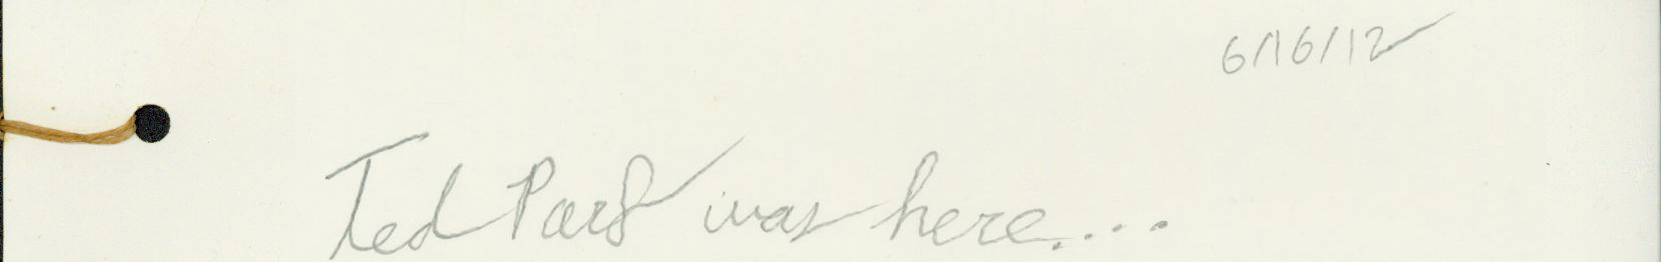 6/16/12
Ted Park was here....